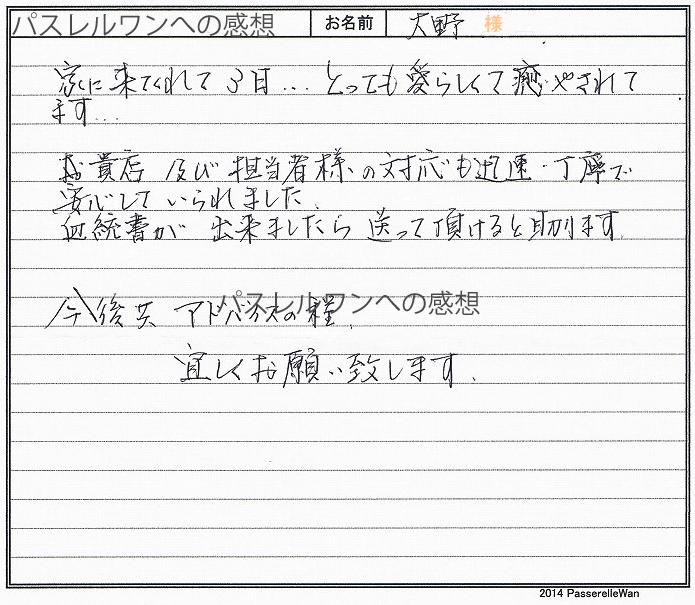 パスレルワンへの感想 お名前 大野 様
家に来てくれて3日... とっても愛らしくて癒やされて
ます...
お貴店 及び 担当者様の対応も迅速・丁寧で
安心していられました.
血統書が 出来ましたら 送って頂けると助ります.
パスレルワンへの感想
今後共 アドバイスの程.
宜しくお願い致します.
2014 PasserelleWan